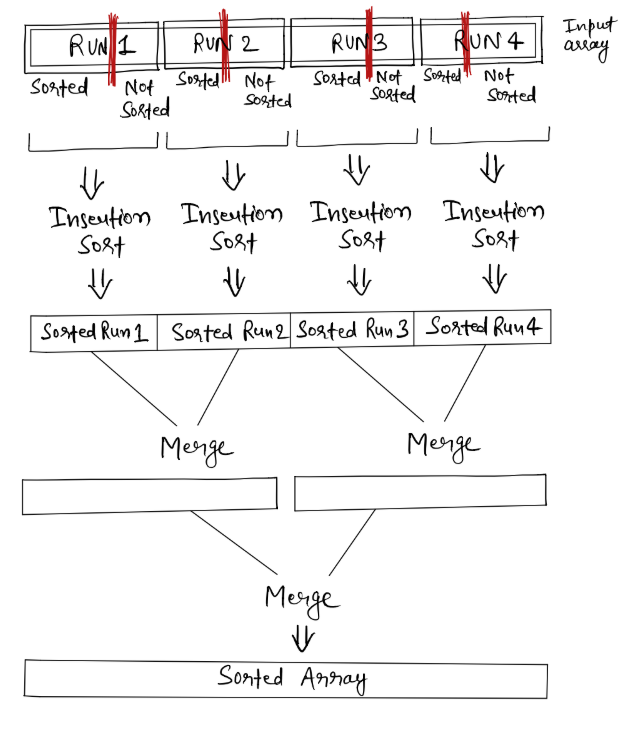 RUN 1
RUN 2
RUN 3
RUN 4
Input
array
Sorted
Not
Sorted
Sorted
Not
Sorted
Sorted
Not
Sorted
Sorted
Not
Sorted
Insertion
Sort
Insertion
Sort
Insertion
Sort
Insertion
Sort
Sorted Run 1
Sorted Run 2
Sorted Run 3
Sorted Run 4
Merge
Merge
Merge
Sorted Array